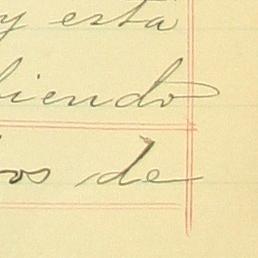 y está
biendo
os de